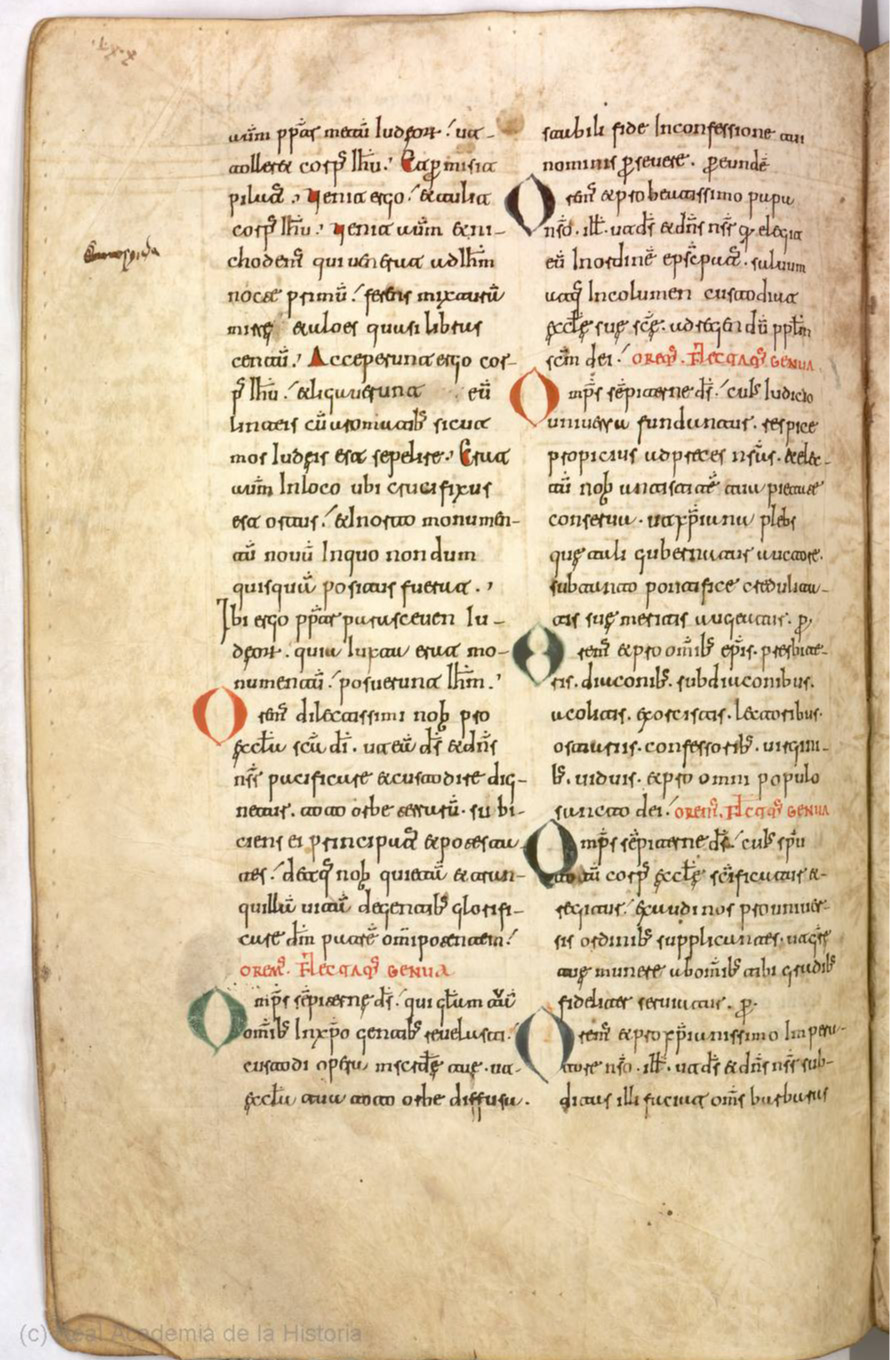 (c) Real Academia de la Historia
aut̄m pp̄t metū Iudęor: ut
tolleret corp̄ Ih̄u. Et p̱misit
pilat̄. Uenit ergo: &tulit
corp̄ Ih̄u. Uenit aut̄m &ni-
chodem̄ qui uenerat ad Ih̄m
nocte primū: ferens mixturā
mirrę &aloes quasi libras
centū. Acceperunt ergo cor-
p̄ Ih̄u: &ligauerunt eū
linteis cū aromatib̄ sicut
mos Iudęis est sepelire. Erat
aut̄m In loco ubi crucifixus
est ortus: &In orto monumen-
tū nouū In quo non dum
quisquā positus fuerat.
Ibi ergo pp̄t parasceuen Iu-
dęor. quia Iuxta erat mo-
numentū: posuerunt Ih̄m.
Orem̄ dilectissimi nob̄ pro
ęccl̄a sc̄a d̄i. ut eā d̄s &dn̄s
nr̄s pacificare &custodire dig-
netur. toto orbe terrarū. subi-
ciens ei principat̄ &potesta-
tes: detq̄ nob̄ quietā &tran-
quillā uitā degentib̄ glorifi-
care d̄m patrē omīpotentem:
OREM̄. FLECTAM̄ GENUA
Omp̄s sēpiterne d̄s: qui gl̄am tuā
omīb̄ In xp̄o gentib̄ reuelasti:
custodi opera mīscd̄ę tue. ut
ęccl̄a tua toto orbe diffusa.
stabili fide In confessione tui
nominis p̱seueret. p̱ eundē
Orem̄ &pro beatissimo papa
nr̄o. ill̄. ut d̄s &dn̄s nr̄s q̱ elegit
eū In ordinē epsc̄pat̄. saluum
atq̄ Incolumem custodiat
ęccl̄ę suę sc̄ę. ad regendū ppl̄m
sc̄m dei: OREM̄. FLECTAM̄ GENUA
Omp̄s sēpiterne d̄s: cui̅s Iudicio
uniuersa fundantur. respice
propicius ad preces nr̄as. &elec-
tū nob̄ antistitē tua pietate
conserua. ut xp̄iana plebs
quę tali gubernatur auctore.
sub tanto pontifice credulita-
tis suę meritis augeatur. p̱
Orem̄ &pro omīb̄ epīs. presbite-
ris. diaconib̄. subdiaconibus.
acolitis. exorcistis. lectoribus.
ostiariis. confessorib̄. uirgini-
b̄. uiduis. &pro omni populo
sancto dei: OREM̄. FLECTAM̄ GENUA
Omp̄s sēpiterne d̄s: cui̅s sp̄u
totū corp̄ ęccl̄ę sc̄ificatur &
regitur: exaudi nos pro uniuer-
sis ordinib̄ supplicantes. ut gr̄ę
tuę munere ab omīb̄ tibi gradib̄
fideliter seruiatur. p̱
Orem̄ &pro xp̄ianissimo Impera-
tore nr̄o. ill̄. ut d̄s &dn̄s nr̄s sub-
ditas illi faciat om̄s barbaras